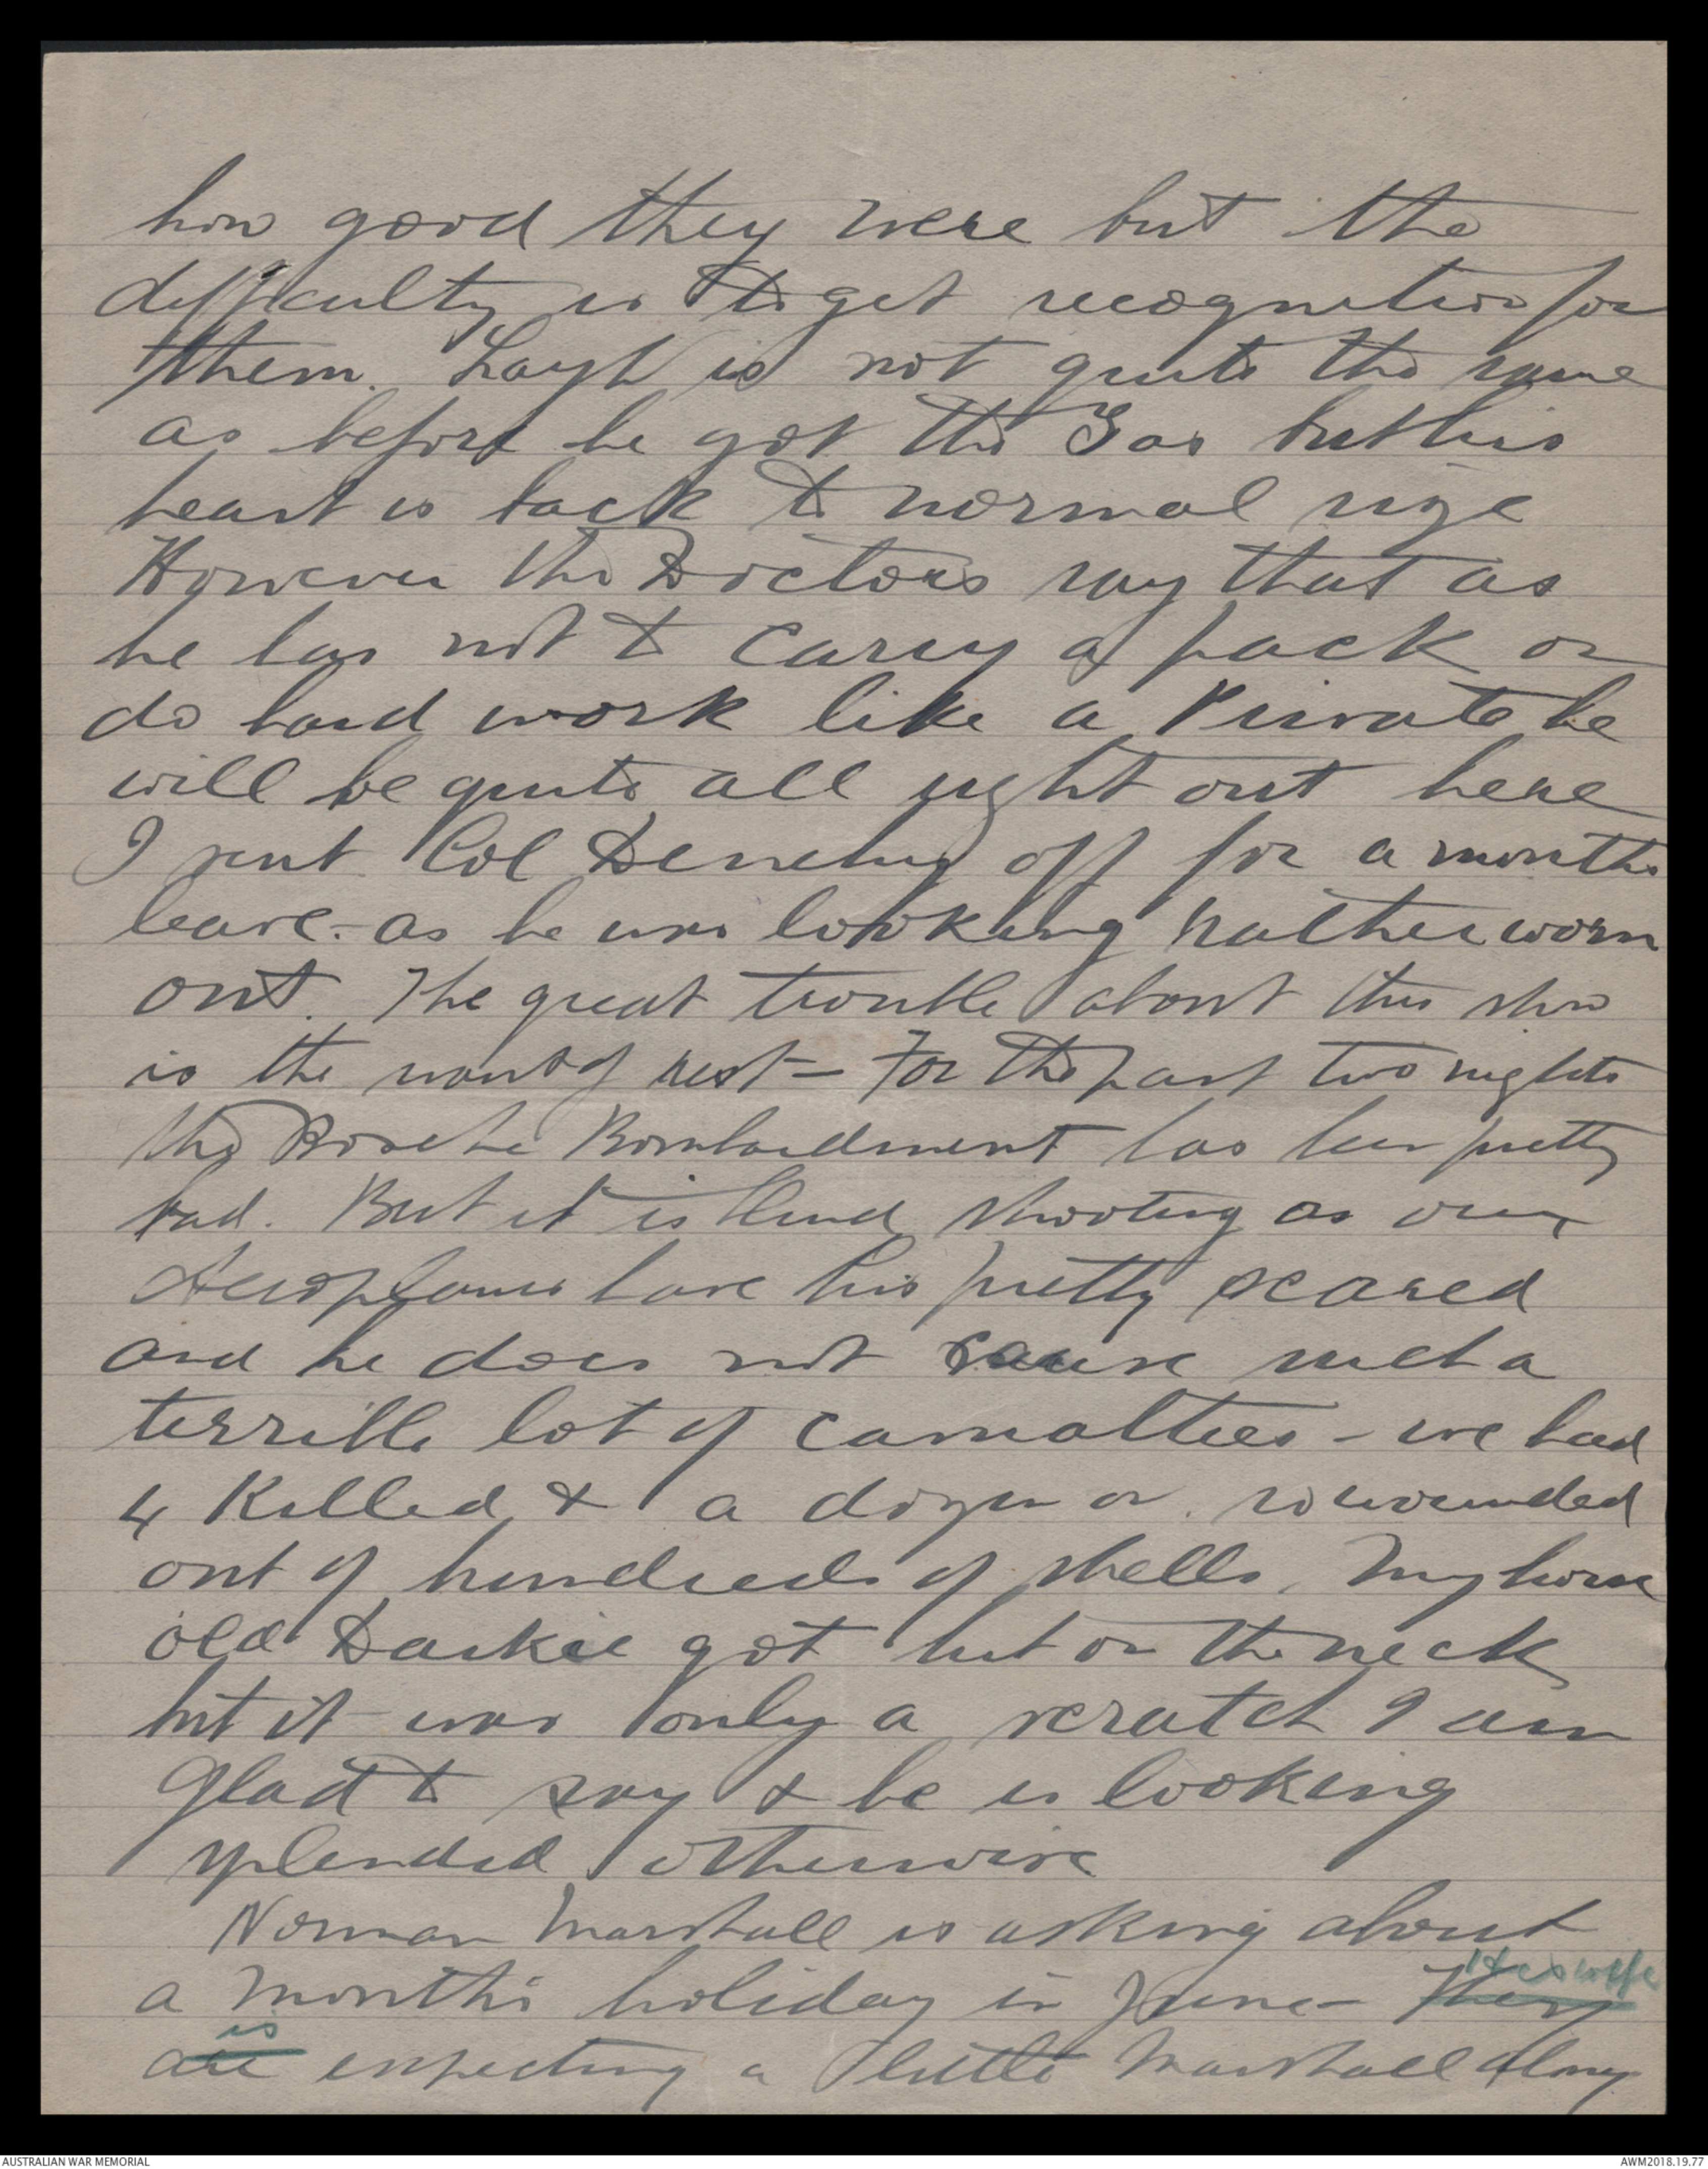 how good they were but the
difficulty is to get recognition for
them. Layh is not quite the same
as before he got the Gas but his
heart is back to normal size
However the Doctors say that as
he has not to carry a pack or
do hard work like a Private he
will be quite all right out here
I sent Col Denehy off for a months
leave - as he was looking rather worn
out. The great trouble about this show
is the want of rest - For the past two nights
the Bosche Bombardment has been pretty
bad. But it is blind shooting as our
Aeroplanes have his pretty scared
and he does not cause such a
terrible lot of casualties - we had
4 Killed & a dozen or so wounded
out of hundreds of shells. My horse
old Darkie got hit on the neck
but it was only a scratch I am
glad to say & he is looking
splendid otherwise
Norman Marshall is asking about
a months holiday in June - They His wife
are is expecting a little Marshall along
AUSTRALIAN WAR MEMORIAL
AWM2018.19.77